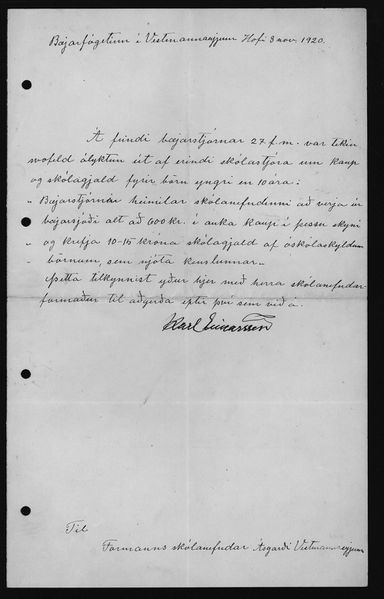 Bæjarfógetinn í Vestmannaeyjum Hofi 3 nov. 1920.
Á fundi bæjarstjórnar 27. f.m. var tekin
svofeld ályktun út af erindi skólastjóra um kaup
og skólagjald fyrir börn yngri en 10 ára:
„Bæjarstjórnin heimilar skólanefndinni að verja úr
„ bæjarsjóði alt að 600 kr. í auka kaup í þessu skyni
„ og krefja 10-15 króna skólagjald af óskólaskyldum
„ börnum, sem njóta kenslunnar.„
Þetta tilkynnist yður hjer með herra skólanefndar-
formaður til aðgerða eptir því sem við á.
Karl Einarsson
Til
Formanns skólanefndar Ásgarði Vestmannaeyjum